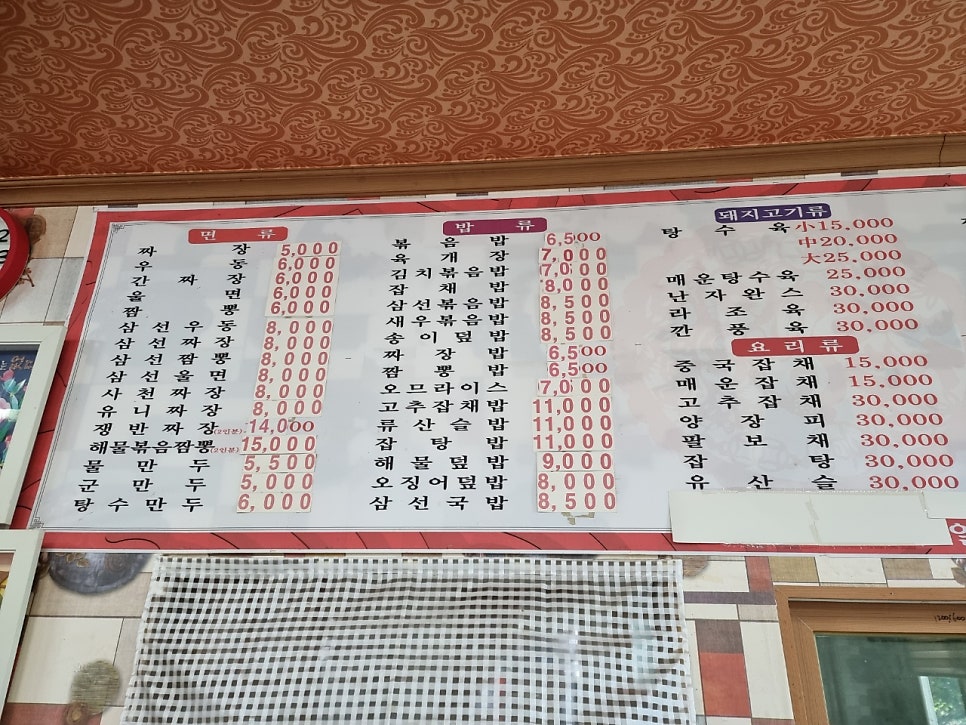 면 류
짜 장 5,000
우 동 6,000
간 짜 장 6,000
울 면 6,000
짬 뽕 6,000
삼 선 우 동 8,000
삼 선 짜 장 8,000
삼 선 짬 뽕 8,000
삼 선 울 면 8,000
사 천 짜 장 8,000
유 니 짜 장 8,000
쟁 반 짜 장(2인분)-14,000
해물볶음짬뽕(2인분)-15,000
물 만 두 5,500
군 만 두 5,000
탕 수 만 두 6,000
밥 류
볶 음 밥 6,500
육 개 장 7,000
김치볶음밥 7,000
잡 채 밥 8,000
삼선볶음밥 8,500
새우볶음밥 8,500
송 이 덮 밥 8,500
짜 장 밥 6,500
짬 뽕 밥 6,500
오므라이스 7,000
고추잡채밥 11,000
류 산 슬 밥 11,000
잡 탕 밥 11,000
해 물 덮 밥 9,000
오징어덮밥 8,000
삼 선 국 밥 8,500
돼지고기류
탕 수 육 小15,000
中20,000
大25,000
매운탕수육 25,000
난 자 완 스 30,000
라 조 육 30,000
깐 풍 육 30,000
요 리 류
중 국 잡 채 15,000
매 운 잡 채 15,000
고 추 잡 채 30,000
양 장 피 30,000
팔 보 채 30,000
잡 탕 30,000
유 산 슬 30,000